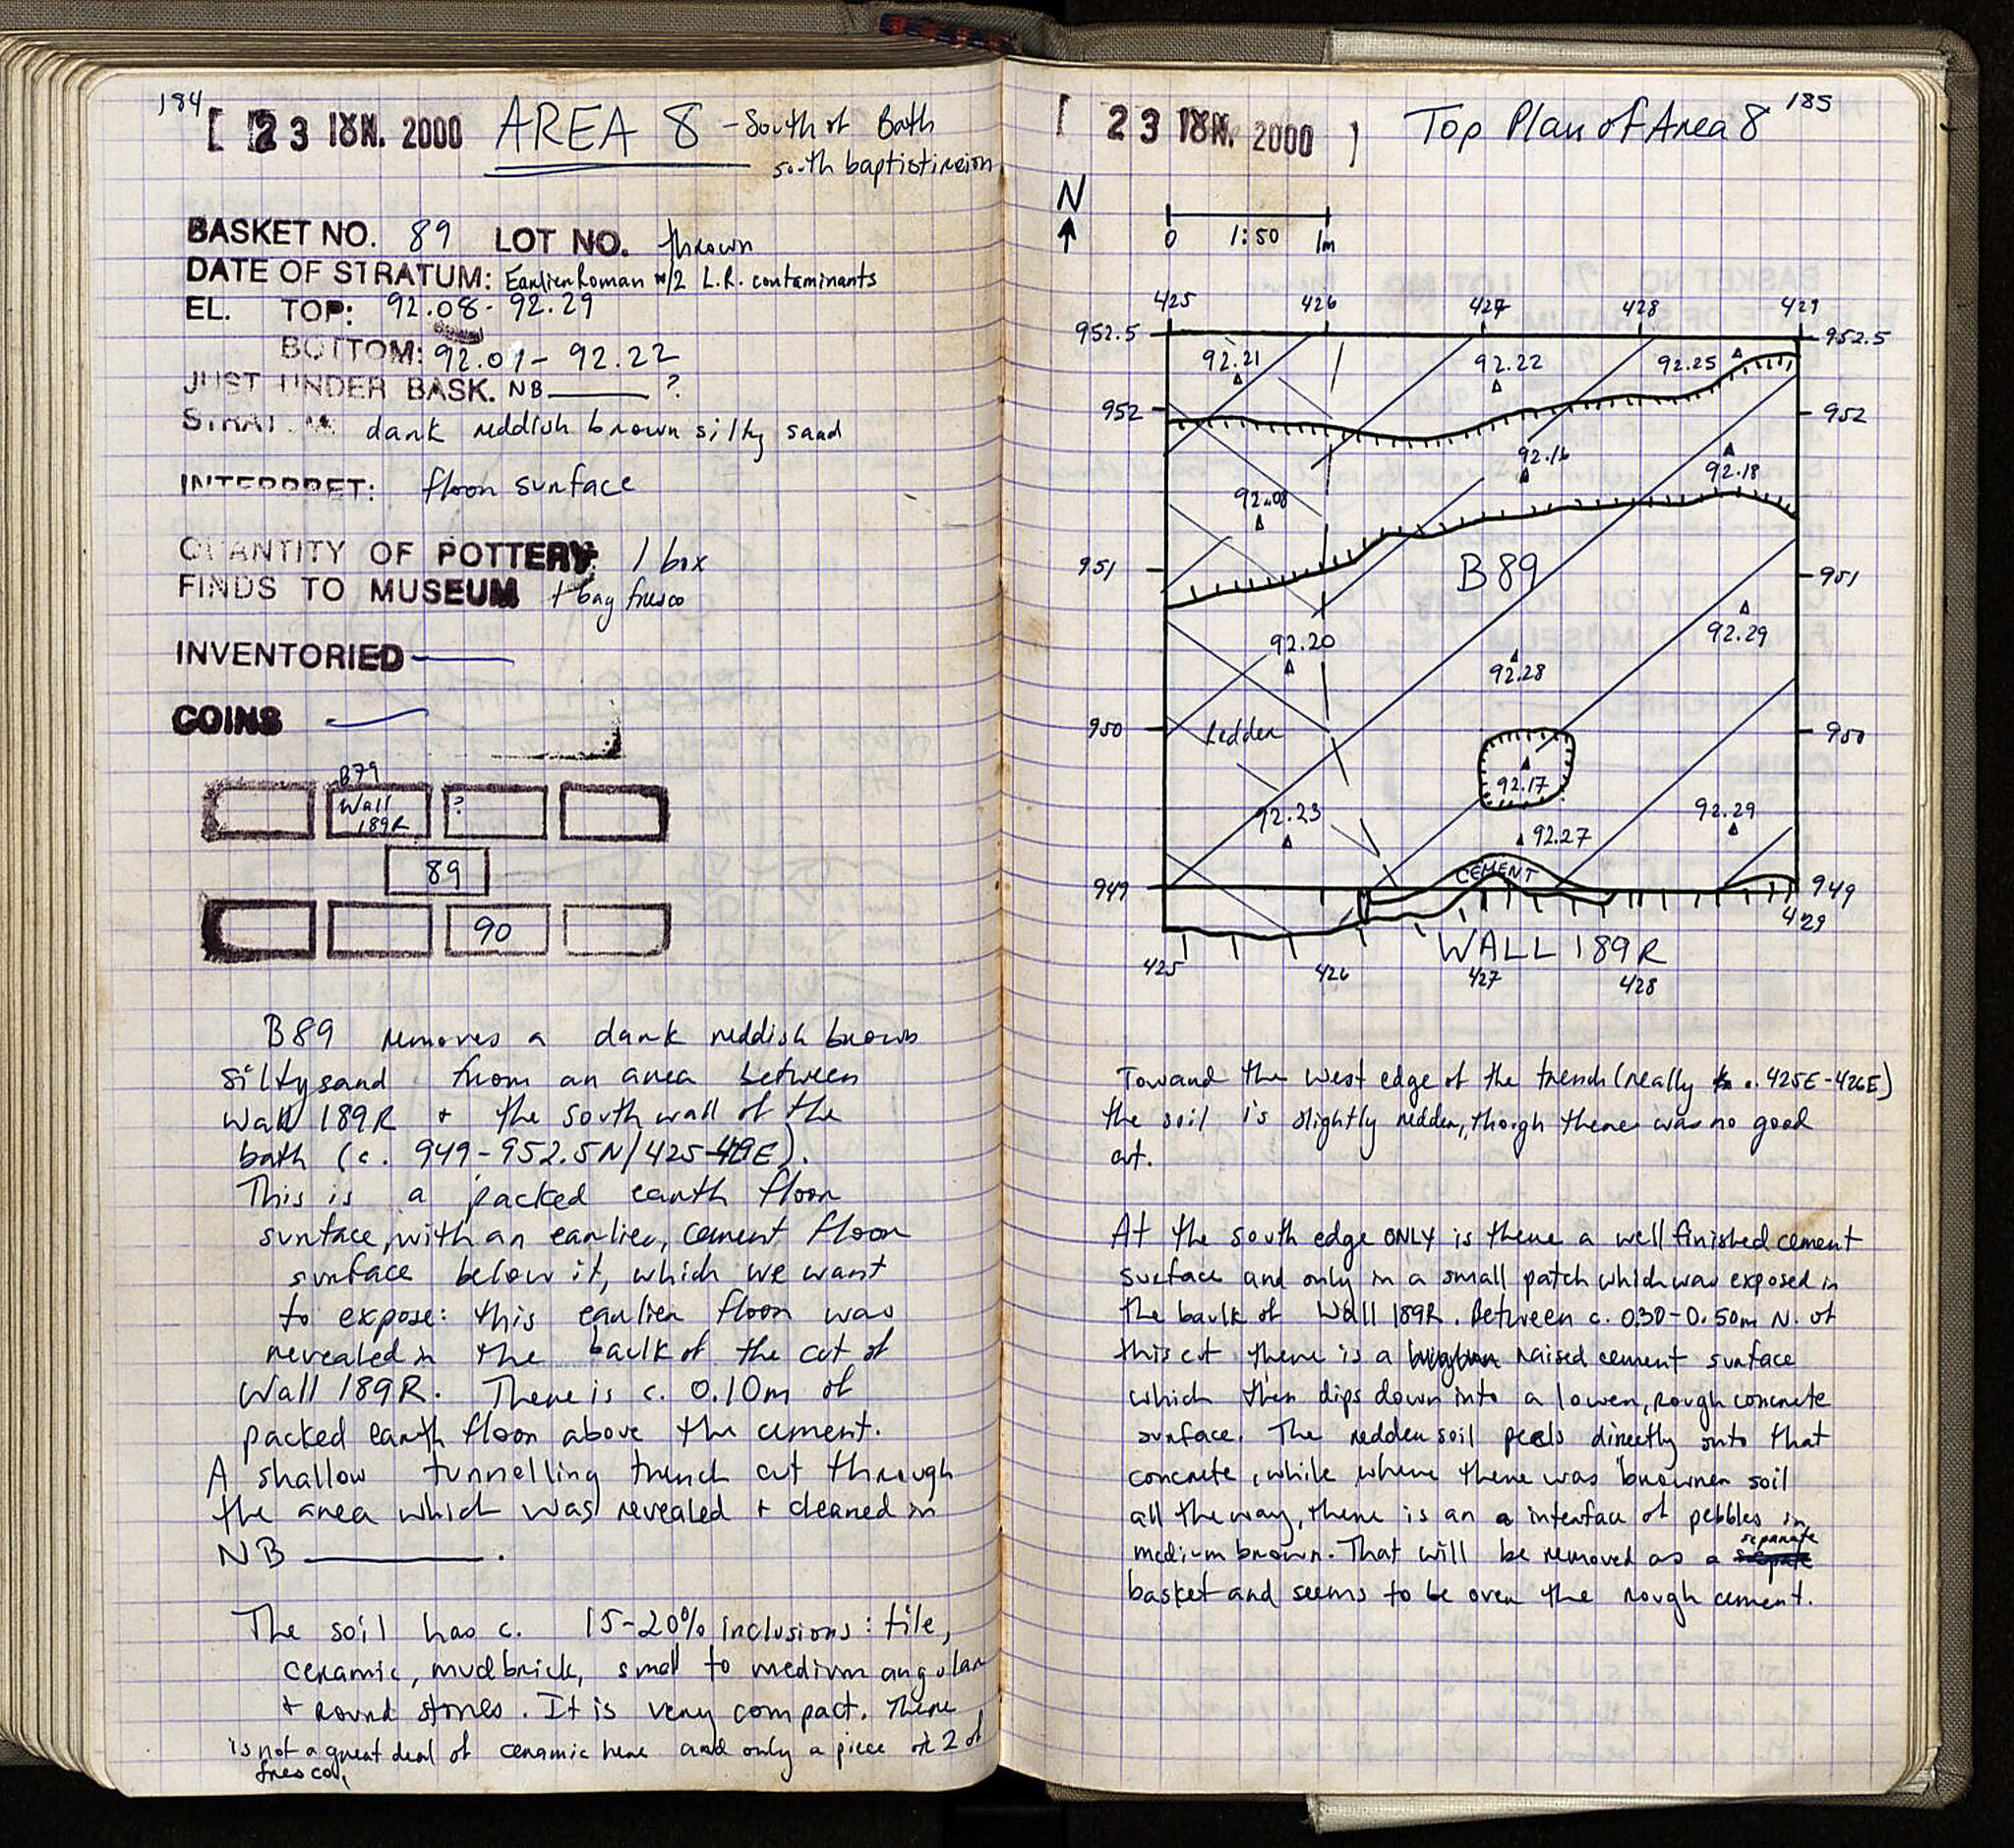 184
[ 23 ΙΟΥΝ. 2000 AREA 8 - South of Bath
south baptistireion
BASKET NO. 89 LOT NO. thrown
DATE OF STRATUM: Earlier Roman w/2 L.R. contaminants
EL. TOP: 92.08 - 92.29
BOTTOM: 92.01 - 92.22
JUST UNDER BASK. NB ______ ?
STRATUM dark reddish brown silty sand
INTERPRET: floor surface
QUANTITY OF POTTERY: 1 box
FINDS TO MUSEUM 1 bag fresco
INVENTORIED —
COINS —
B79
Wall
189R
?
89
90
B89 removes a dark reddish brown
silty sand from an area between
Wall 189R + the south wall of the
bath (c. 949-952.5N/425-429E).
This is a packed earth floor
surface, with an earlier, cement floor
surface below it, which we want
to expose: this earlier floor was
revealed in the baulk of the cut of
Wall 189R. There is c. 0.10m of
packed earth floor above the cement.
A shallow tunnelling trench cut through
the area which was revealed + cleaned in
NB ______.
The soil has c. 15-20% inclusions: tile,
ceramic, mudbrick, small to medium angular
+ round stones. It is very compact. There
is not a great deal of ceramic here and only a piece or 2 of
fresco.
185
[ 23 ΙΟΥΝ. 2000 ] Top Plan of Area 8
N
0 1:50 1m
425 426 427 428 429
952.5 952.5
92.21 92.22 92.25
952 952
92.16 92.18
92.08
951 B89 951
92.29
92.20 92.28
950 Redder 950
92.17
92.23 92.29
92.27
CEMENT
949 949
429
WALL 189R
425 426 427 428
Toward the west edge of the trench (really c. 425E-426E)
the soil is slightly redder, though there was no good
cut.
At the south edge ONLY is there a well finished cement
surface and only in a small patch which was exposed in
the baulk of Wall 189R. Between c. 0.30-0.50m N. of
this cut there is a raised cement surface
which then dips down into a lower, rough concrete
surface. The redder soil peels directly onto that
concrete, while where there was browner soil
all the way, there is an a interface of pebbles in
medium brown. That will be removed as a separate
basket and seems to be over the rough cement.